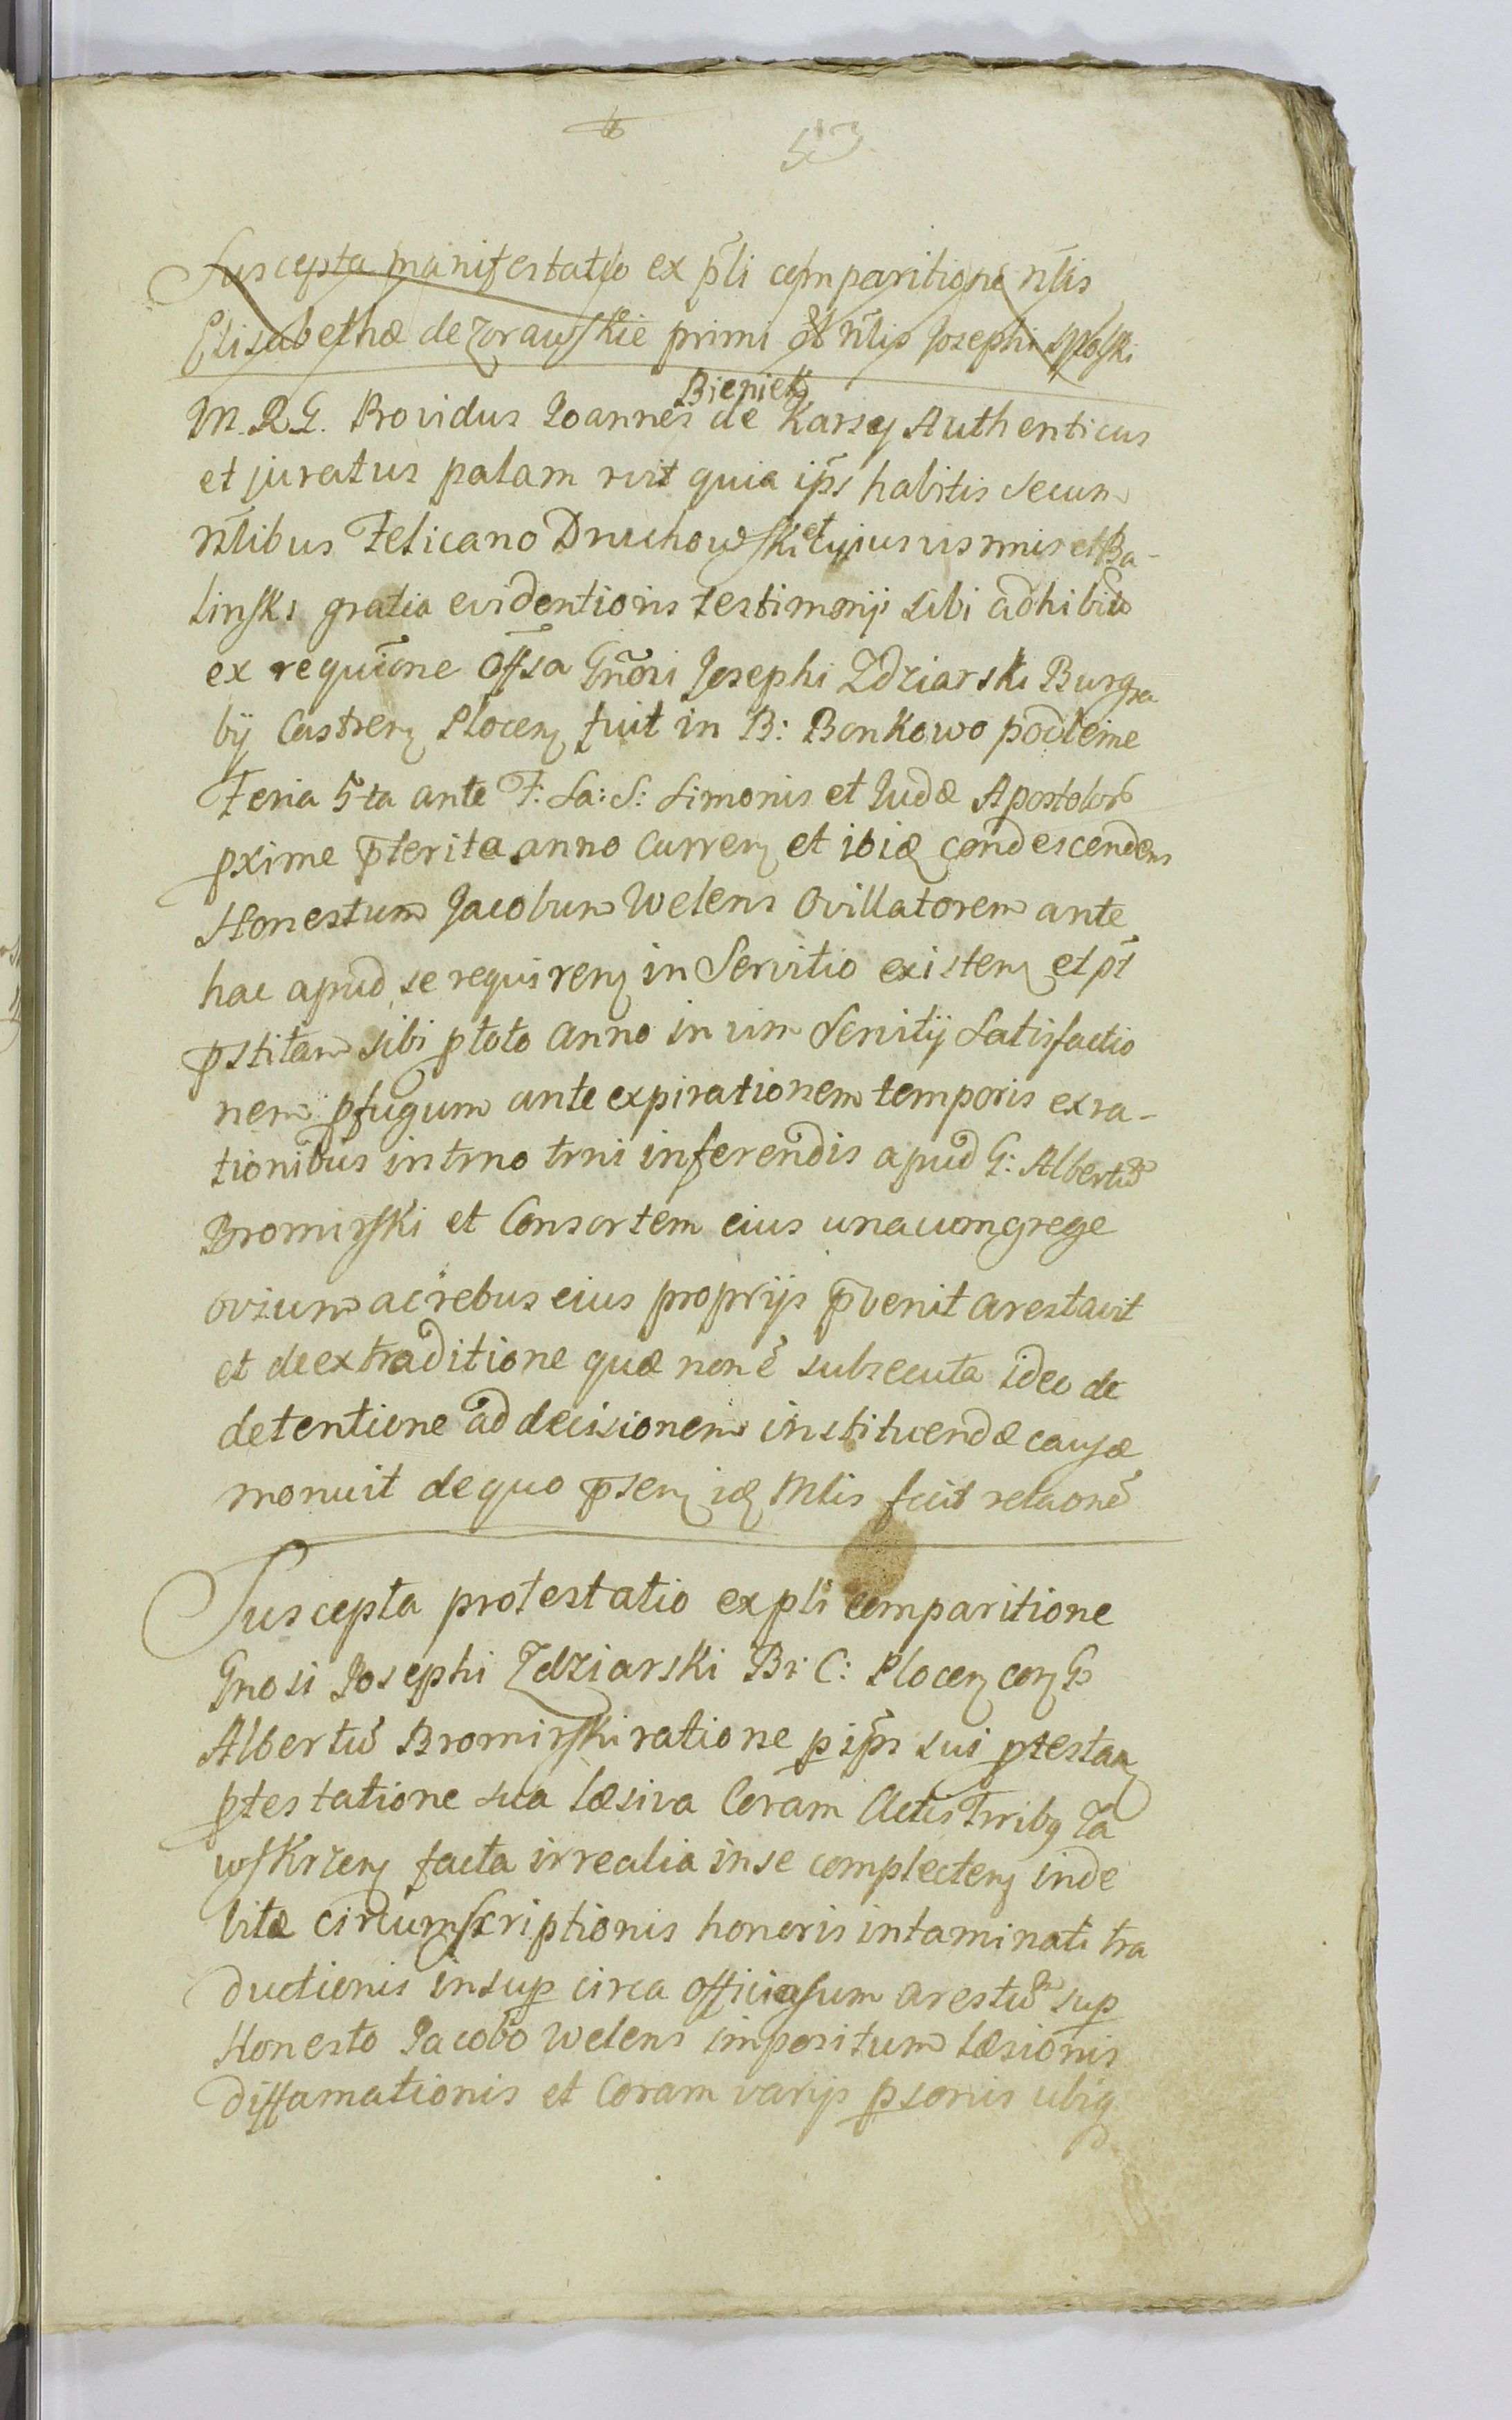 53
Suscepta manifestatio ex pli comparitione nlis
Elisabethæ de Zorawskie primi et nlis Josephi
M. R. G. Providus Joannes Bieniek de Karsy Authenticus
et juratus palam rvit quia ips habitis secum
nlibus Felicano Druchowski et et Ba-
linski gratia evidentioris testimonij sibi adhibito
ex requione Offsa Gnosi Josephi Zdziarski Burgra
bij Castren Plocen fuit in B: Bonkowo podleine
Feria 5ta ante F: Sa: S: Simonis et Judæ Apostolor
pxime pterita anno Curren et ibid condescendens
Honestum Jacobum Welens Ovillatorem ante
hac apud se requiren in Servitio existen et pt
pstitam sibi ptoto anno in vim Servitij Satisfactio
nem pfugum ante expirationem temporis ex ra-
tionibus in trno trni inferendis apud G: Albertum
Bromirski et Consortem eius unacum grege
ovium ac rebus eius proprijs pvenit arestavit
et de extraditione quæ non ē subsecuta ideo de
detentione ad decisionem instituendæ causæ
monuit de quo psen id Mlis fecit relaonē
Suscepta protestatio ex pli comparitione
Gnosi Josephi Zdziarski B: C: Plocen con G
Albertū Bromirski ratione p ips sui ptestan
ptestatione sua læsiva Coram Actis Trribg Za
wskrzen facta irrealia in se complecten inde
bitæ circumscriptionis honoris intaminati tra
ductionis insup circa officiosum arestum sup
Honesto Jacobo Welens impositum læsionis
diffamationis et Coram varijs psonis ubiq